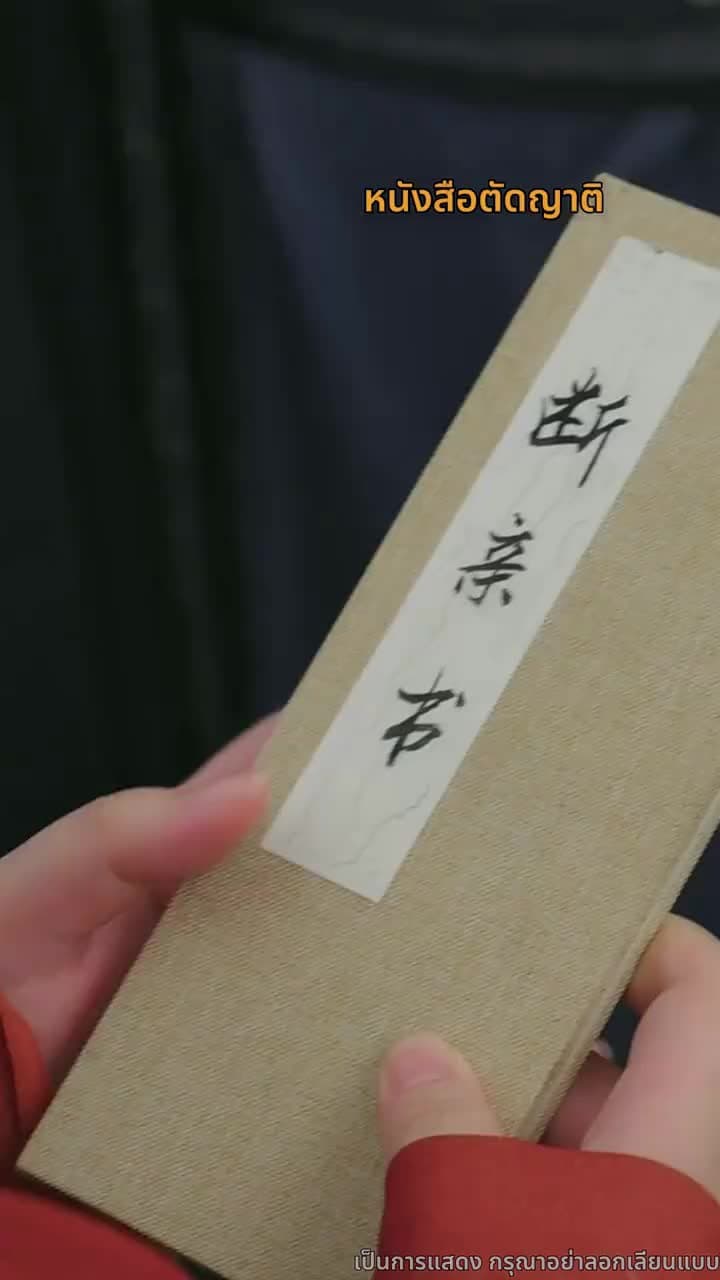 หนังสือตัดญาติ
断亲书
เป็นการแสดง กรุณาอย่าลอกเลียนแบบ